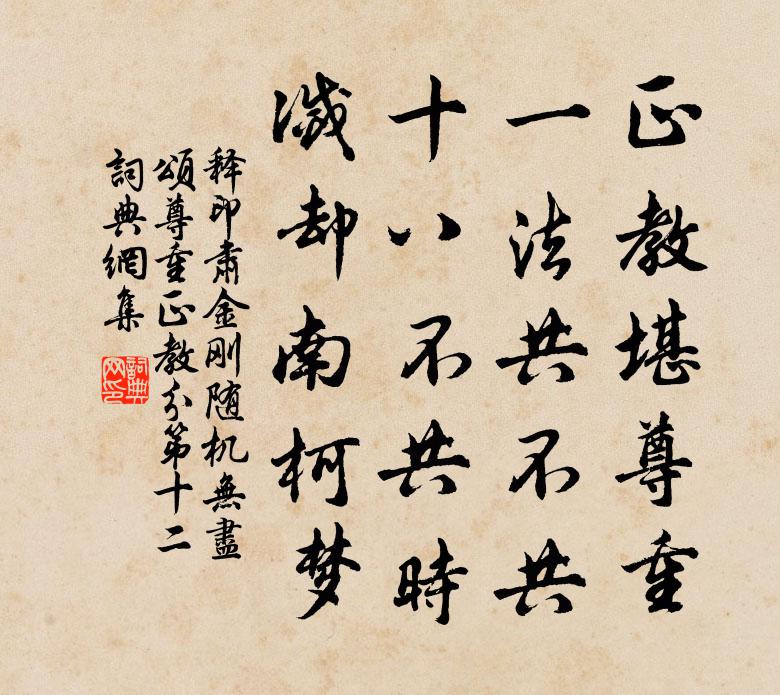 正教堪尊重
一法共不共
十八不共時
滅却南柯梦
释印肃金刚随机無盡
頌尊重正教分第十二
詞典網集
詞典
网印